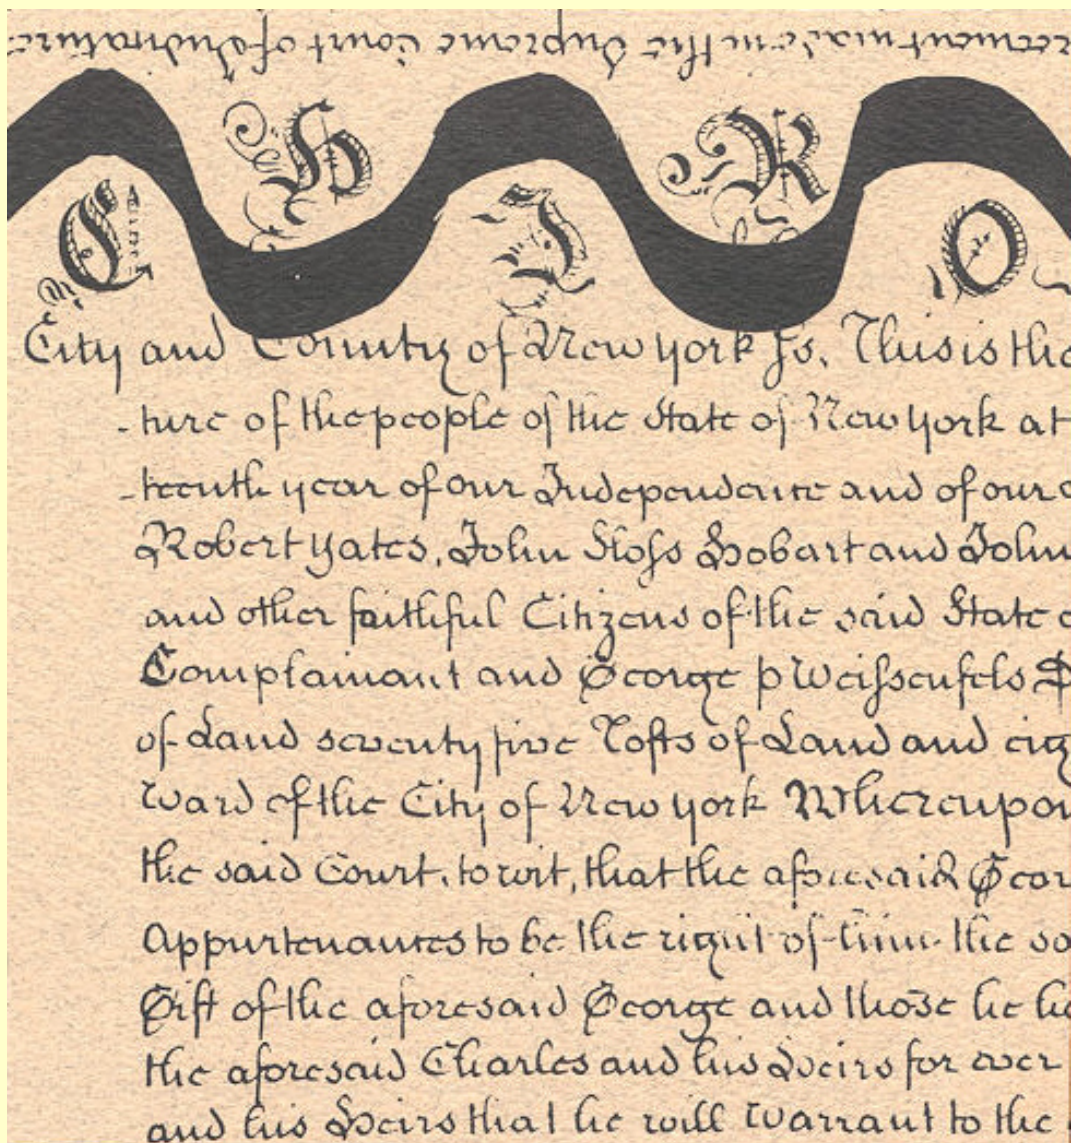 reement made in the Supreme Court of Judicature
C H I R O
City and County of New York ſs. This is the
-ture of the people of the State of New York at
-teenth year of our Independence and of our
Robert Yates, John Sloſs Hobart and John
and other faithful Citizens of the said State
Complainant and George p Weiſsenfels
of Land seventy five Tofts of Land and eig
Ward of the City of New York Whereupon
the said Court, to wit, that the aforesaid Geor
Appurtenances to be the right of him the sa
Gift of the aforesaid George and those he h
the aforesaid Charles and his Heirs for ever
and his Heirs that he will Warrant to the